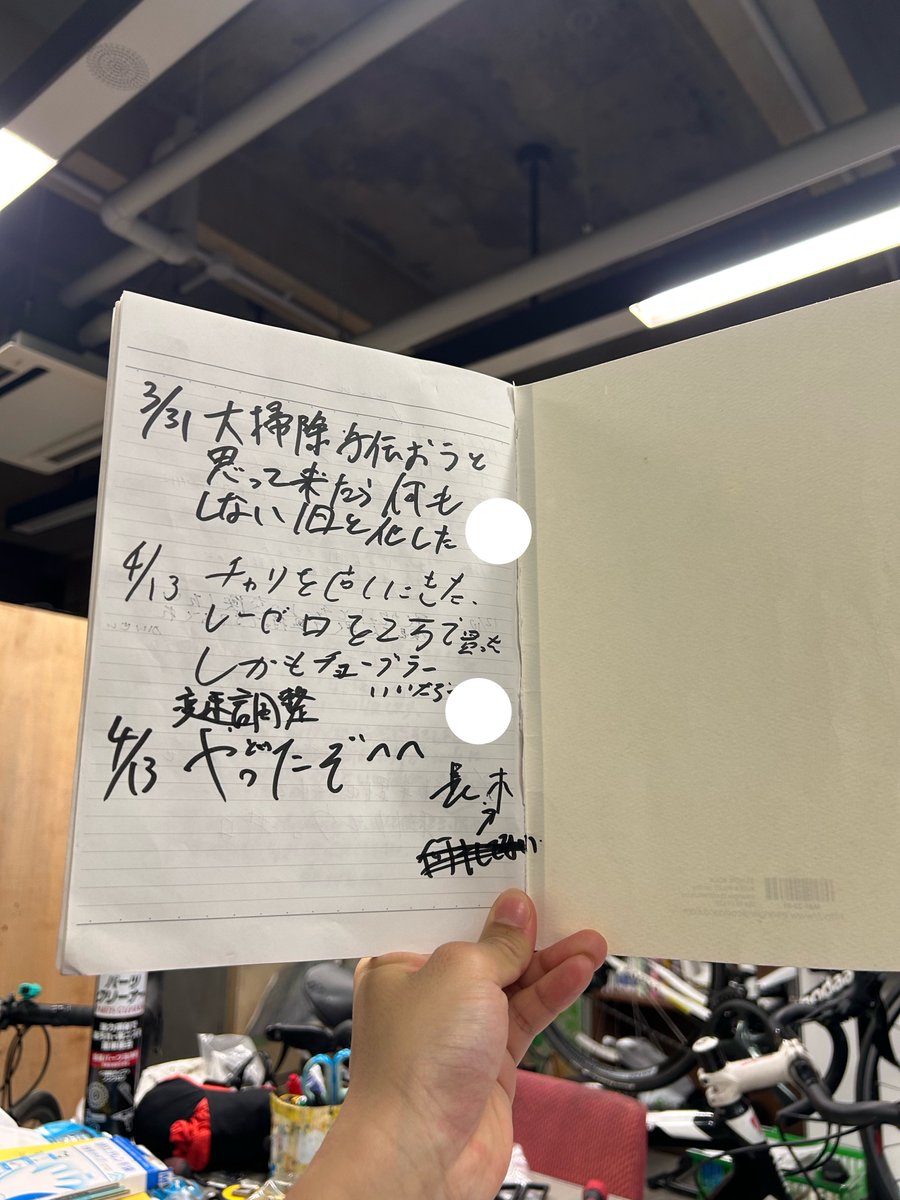 3/31 大掃除手伝おうと
思って来たら何も
しない1日と化した
4/13 チャリを直しにきた、
レーゼロを2万で買った
しかもチューブラー
いいだろう
変速調整
4/13 やったぞへへ
長木
パーツ
クリーナー